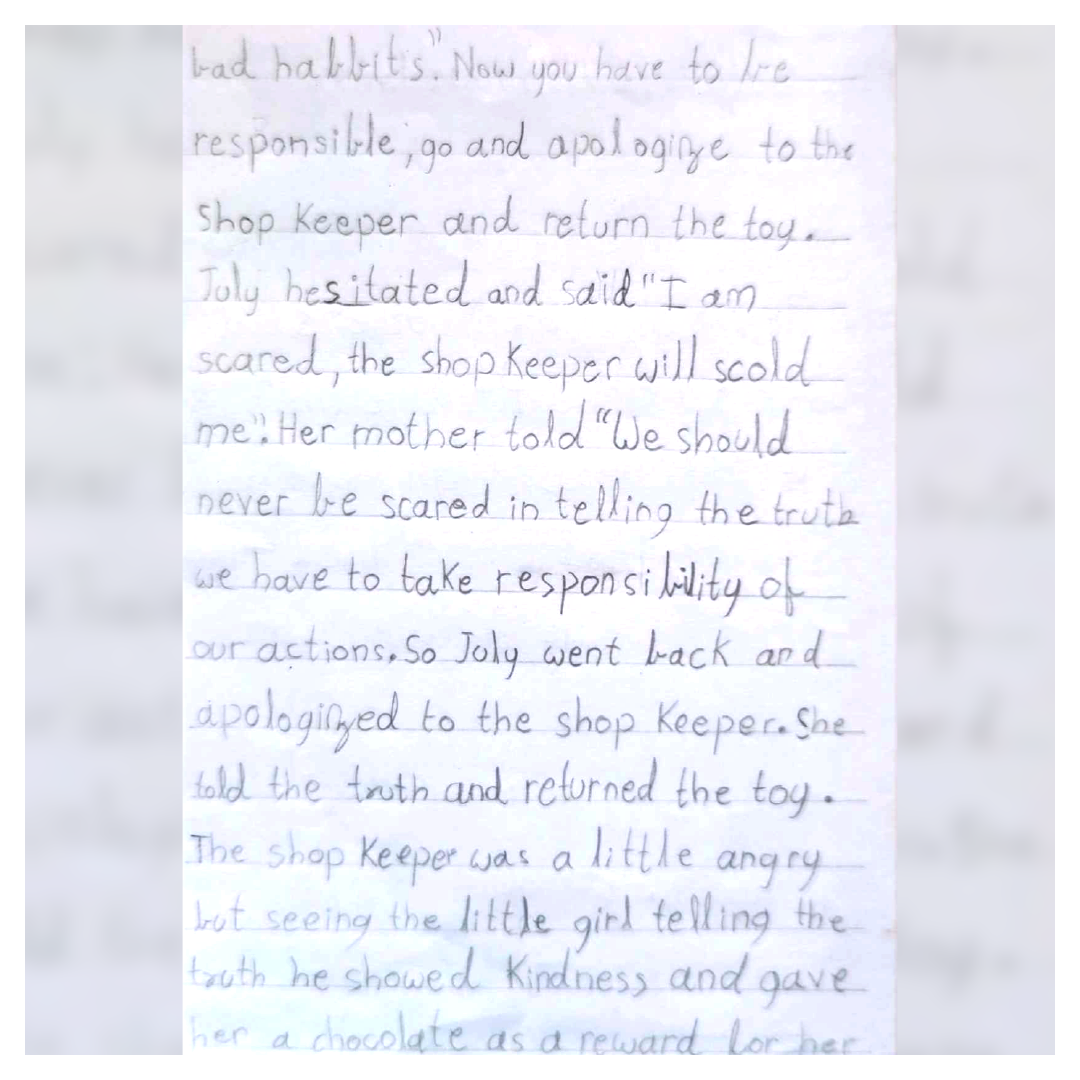 bad habbit's". Now you have to be
responsible, go and apologize to the
shop keeper and return the toy.
July hesitated and said "I am
scared, the shop keeper will scold
me". Her mother told "We should
never be scared in telling the truth
we have to take responsibility of
our actions. So July went back and
apologized to the shop keeper. She
told the truth and returned the toy.
The shop keeper was a little angry
but seeing the little girl telling the
truth he showed kindness and gave
her a chocolate as a reward for her